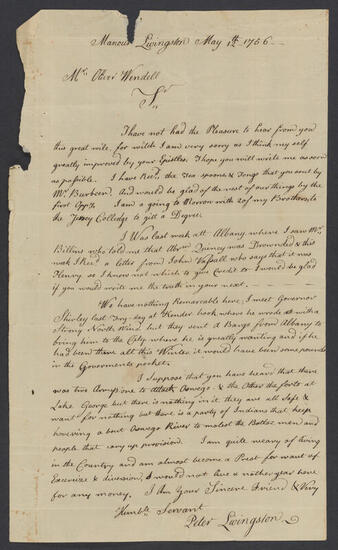 Manour Livingston May 1th 1756
Mr Oliver Wendell
Sr
I have not had the Pleasure to hear from you
this great wile, for wich I am very sorry as I think my self
greatly improved by your Epistles. I hope you will write me as soon
as possible. I have Recd the Tea spoons & Tongs that you sent by
Mr Burbeen. And would be glad of the rest of our things by the
first Oppty. I am a going to Morrow with 2 of my Brothers to
the Jersey Colledge to gitt a Degree.
I Was last week att Albany, where I saw Mr
Billins who told me that Abrm Quincy was Drownded & this
week I Recd a letter from John Vassall who says that it was
Henry so I know not which to give Credit to I would be glad
if you would write me the truth in your next.
We have nothing Remarcable here, I meet Governor
Shirley last at Kinder hook where he with a
Strong North Wind, but they sent a Barge from Albany to
bring him to the City where he is greatly wanting and if he
had been there all this Winter it would have been some pounds
in the Governments pocket.
I Suppose that you have heard that there
was two Armys out to Attack Oswego & the Other the forts at
Lake George but there is nothing in it they are all Safe &
want for nothing but there is a party of Indians that keep
hovering a bout Oswego River to molest the Battoe men and
people that cary up provision. I am quite weary of living
in the Country and am almost become a Prest for want of
Exercise & diversion, I would not live a nother year here
for any money. I Am Your Sincere Friend & Very
Humble Servant
Peter Livingston